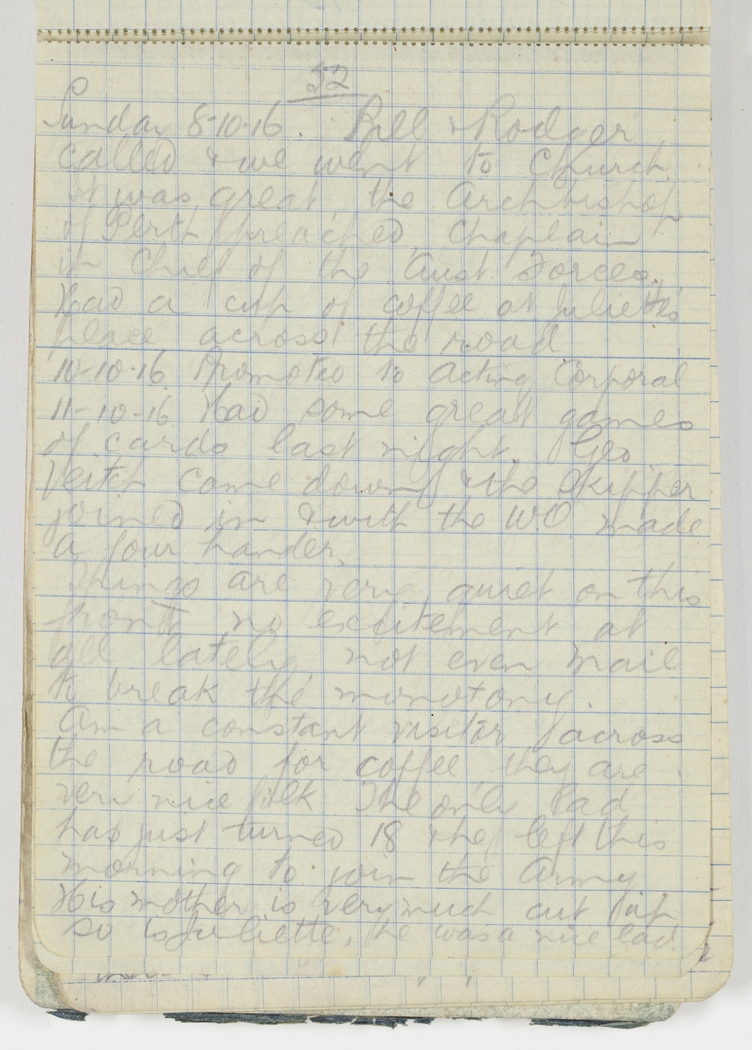 52
Sunday 8-10-16. Bill & Rodger
called & we went to Church
it was great the Archbishop
of Perth preached, Chaplain
in Chief of the Aust. Forces.
Had a cup of coffee at Juliette's
place across the road
10-10-16. Promoted to acting Corporal
11-10-16 Had some great games
of cards last night. Geo
Veitch came down & the skipper
joined in & with the WO made
a four hander.
Things are very quiet on this
front no excitement at
all lately not even mail
to break the monotony.
Am a constant visitor across
the road for coffee, they are
very nice folk The only lad
has just turned 18 & he left this
morning to join the Army
His mother is very much cut up
so is Juliette, he was a nice lad.